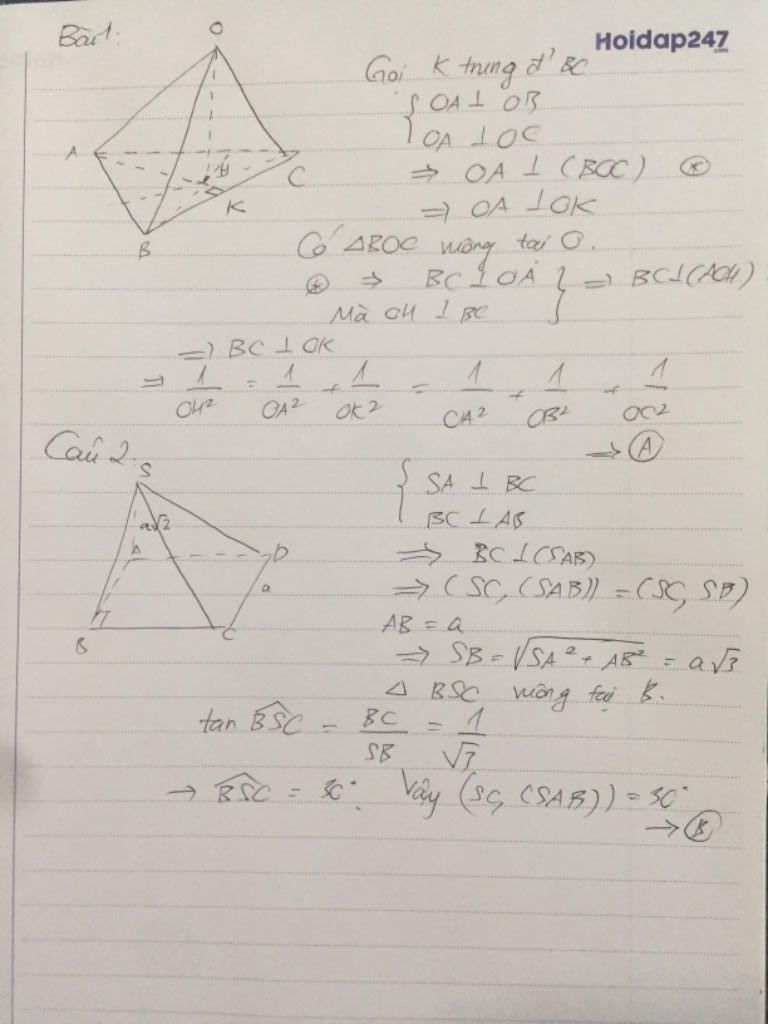 Bài 1:
Hoidap247
.com
O
A
H
C
K
B
Gọi K trung đ' BC
{ OA ⊥ OB
OA ⊥ OC
⇒ OA ⊥ (BOC) (*)
⇒ OA ⊥ OK
Có △BOC vuông tại O.
(*) ⇒ BC ⊥ OA } ⇒ BC⊥(AOH)
Mà OH ⊥ BC
⇒ BC ⊥ OK
⇒ 1/OH² = 1/OA² + 1/OK² = 1/OA² + 1/OB² + 1/OC²
⇒ (A)
Câu 2:
S
a√2
A
D
a
B
C
{ SA ⊥ BC
BC ⊥ AB
⇒ BC ⊥ (SAB)
⇒ (SC, (SAB)) = (SC, SB)
AB = a
⇒ SB = √(SA² + AB²) = a√3
△ BSC vuông tại B.
tan BSC = BC/SB = 1/√3
→ BSC = 30°. Vậy (SC, (SAB)) = 30°
→ (B)